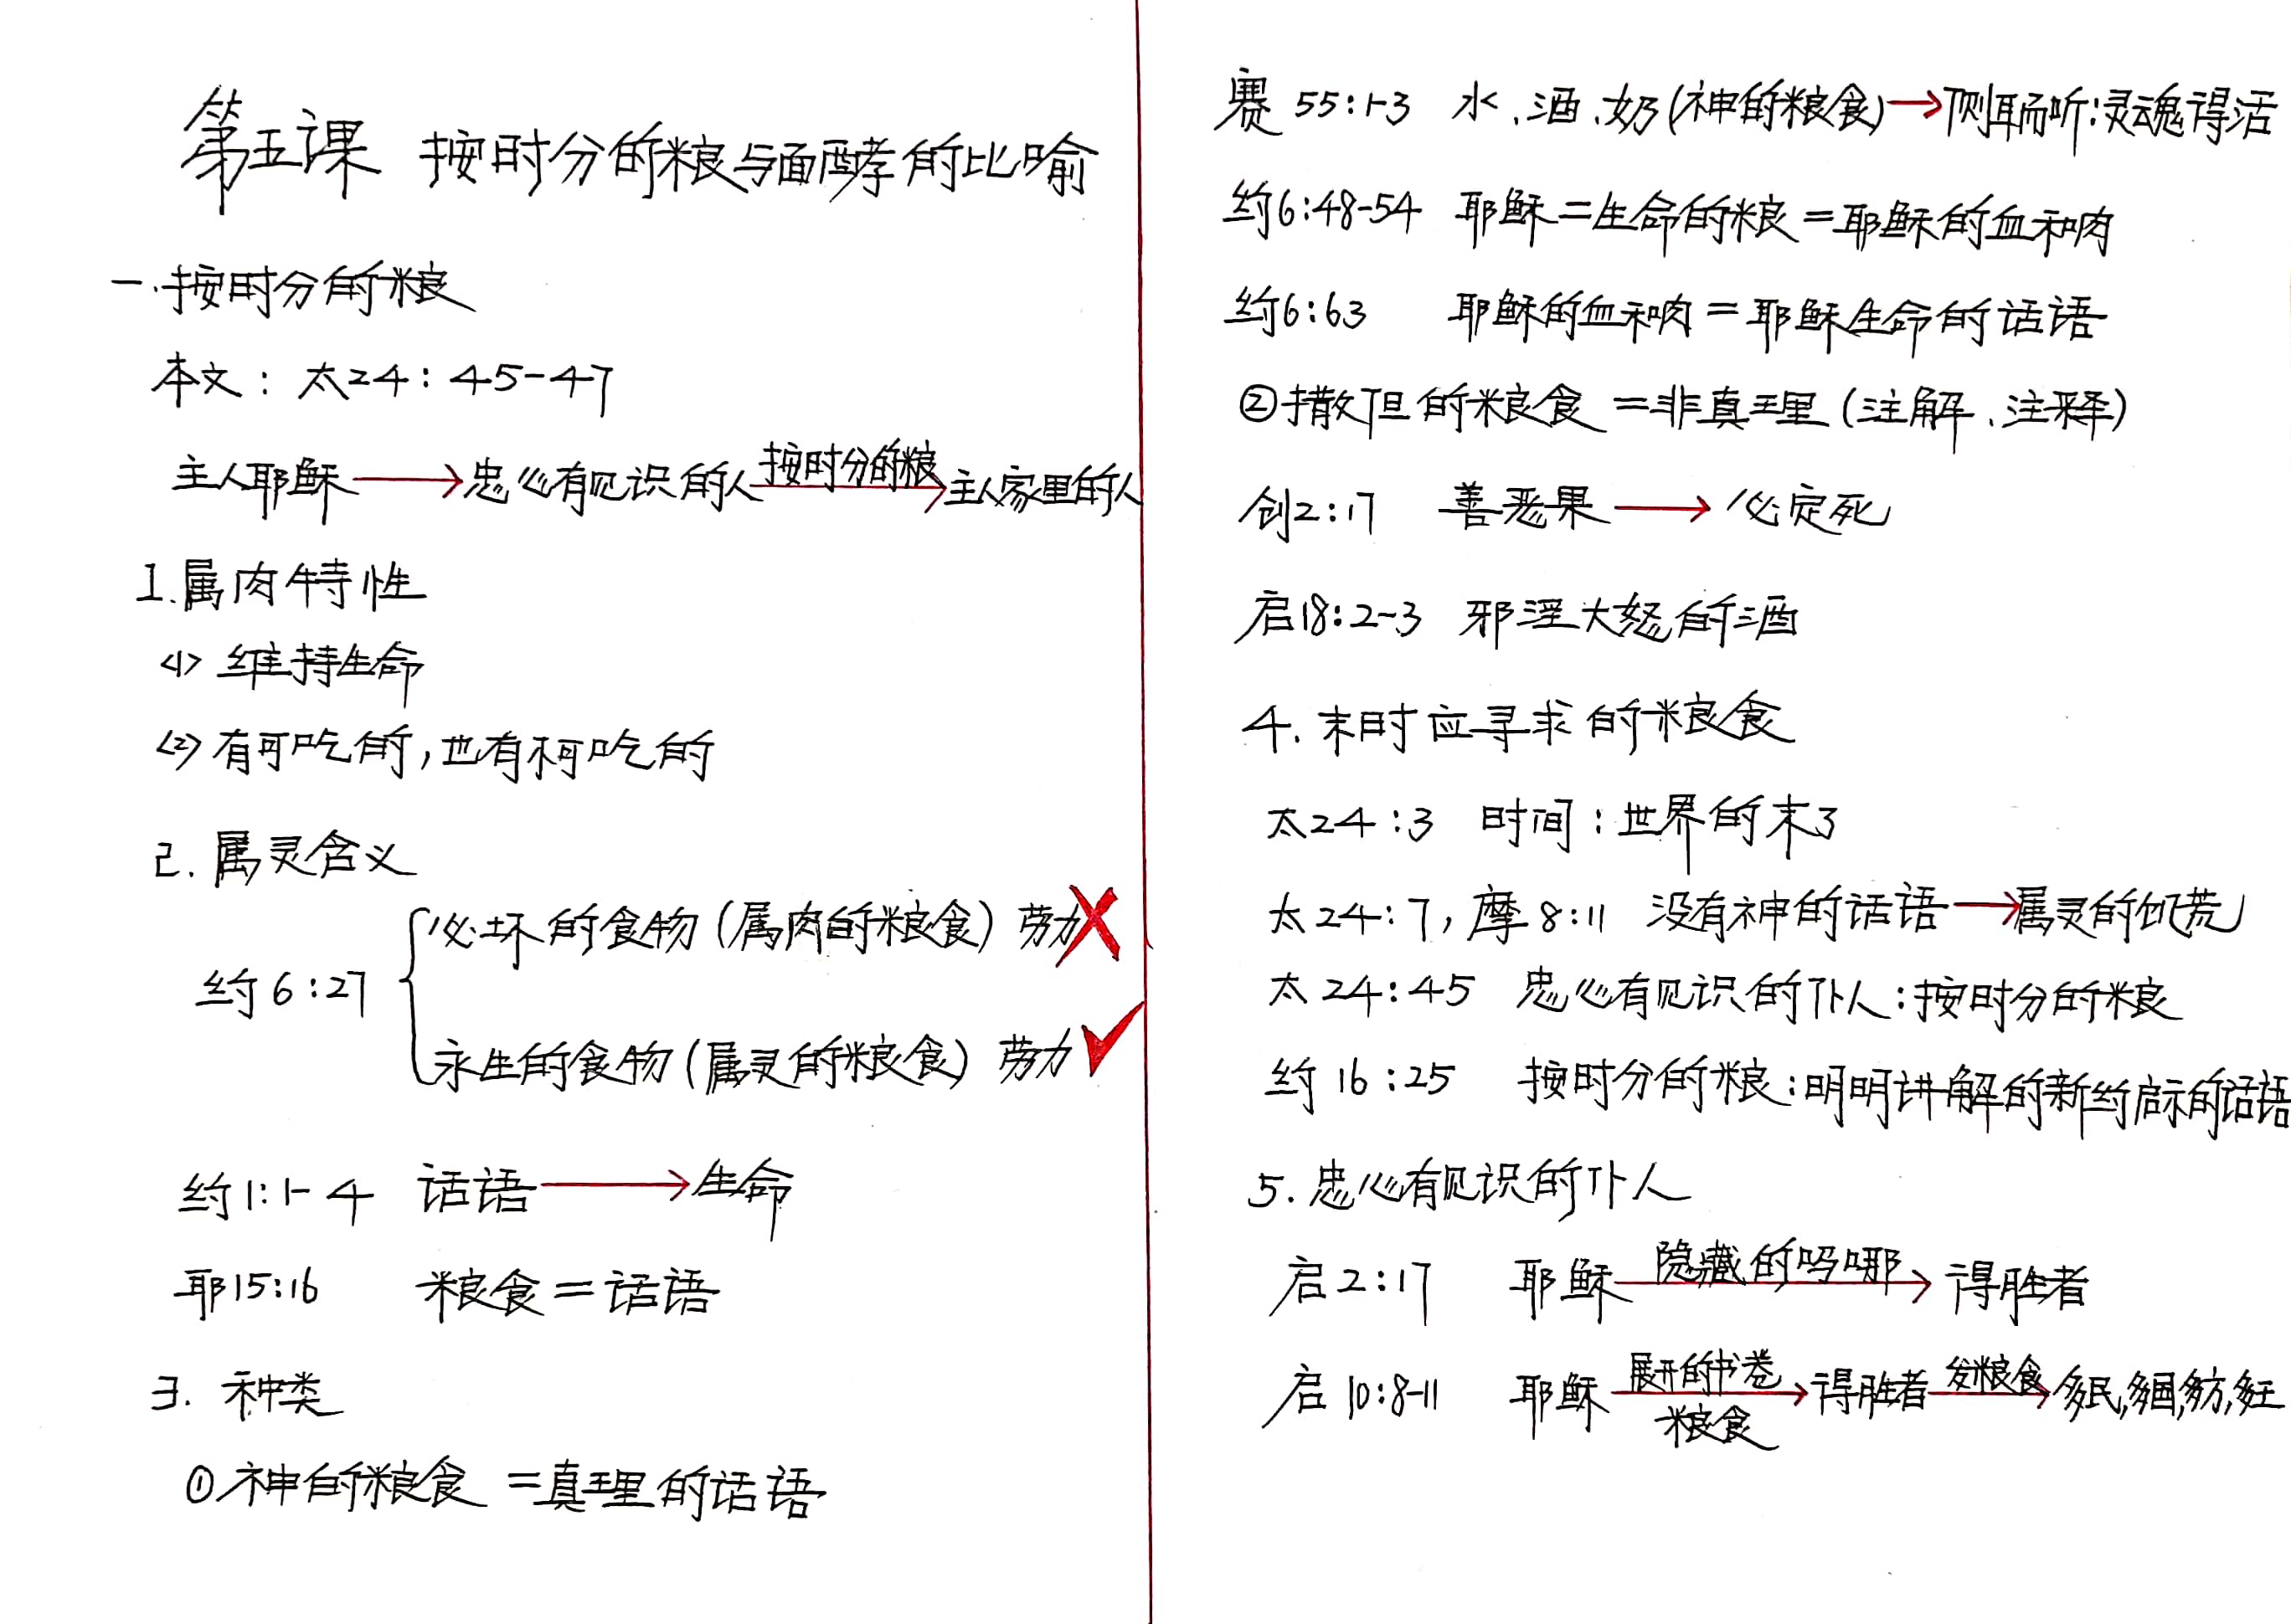 第五课 按时分的粮与面酵的比喻
一.按时分的粮
本文：太24：45-47
主人耶稣→忠心有见识的人 按时分的粮→主人家里的人
1.属肉特性
<1>维持生命
<2>有可吃的,也有不可吃的
2.属灵含义
必坏的食物(属肉的粮食)劳力✗
约6:27
永生的食物(属灵的粮食)劳力✓
约1:1-4 话语→生命
耶15:16 粮食=话语
3.种类
①神的粮食=真理的话语
赛55:1-3 水、酒、奶(神的粮食)→侧耳而听:灵魂得活
约6:48-54 耶稣=生命的粮=耶稣的血和肉
约6:63 耶稣的血和肉=耶稣生命的话语
②撒但的粮食=非真理(注解、注释)
创2:17 善恶果→必定死
启18:2-3 邪淫大怒的酒
4.末时应寻求的粮食
太24:3 时间:世界的末了
太24:7,摩8:11 没有神的话语→属灵的饥荒
太24:45 忠心有见识的仆人:按时分的粮
约16:25 按时分的粮:明明讲解的新约启示的话语
5.忠心有见识的仆人
启2:17 耶稣 隐藏的吗哪→得胜者
启10:8-11 耶稣 展开的书卷 粮食→得胜者 发粮食→多民,多国,多方,多王